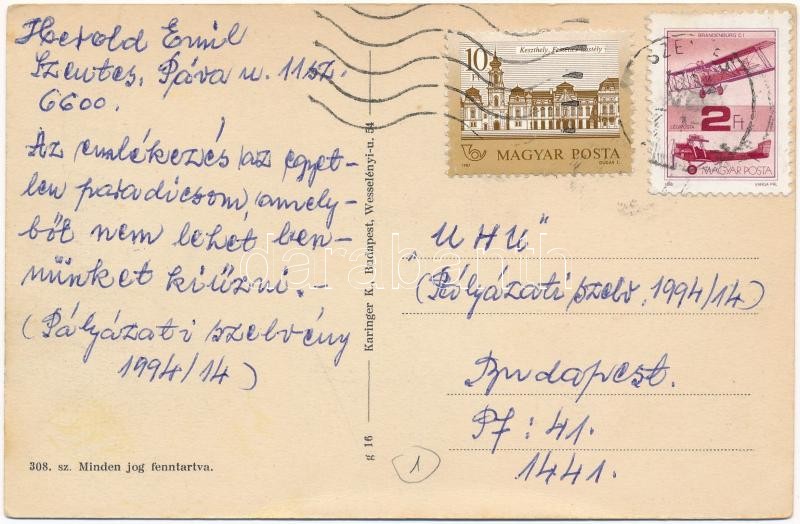 Herold Emil
Szentes, Páva u. 11 sz.
6600.
Az emlékezés az egyet-
len paradicsom, amely-
ből nem lehet ben-
nünket kiűzni. -
(Pályázati szelvény
1994/14)
308. sz. Minden jog fenntartva.
g 16
Karinger K., Budapest, Wesselényi-u. 54
10
Ft
Keszthely, Festetics-kastély
MAGYAR POSTA
1987
DUDÁS L.
BRANDENBURG C.I
LÉGIPOSTA
2 Ft
MAGYAR POSTA
VARGA PÁL
SZEN
„UHU"
(Pályázati szelv. 1994/14)
Budapest.
Pf: 41.
1441.
1
darabanth